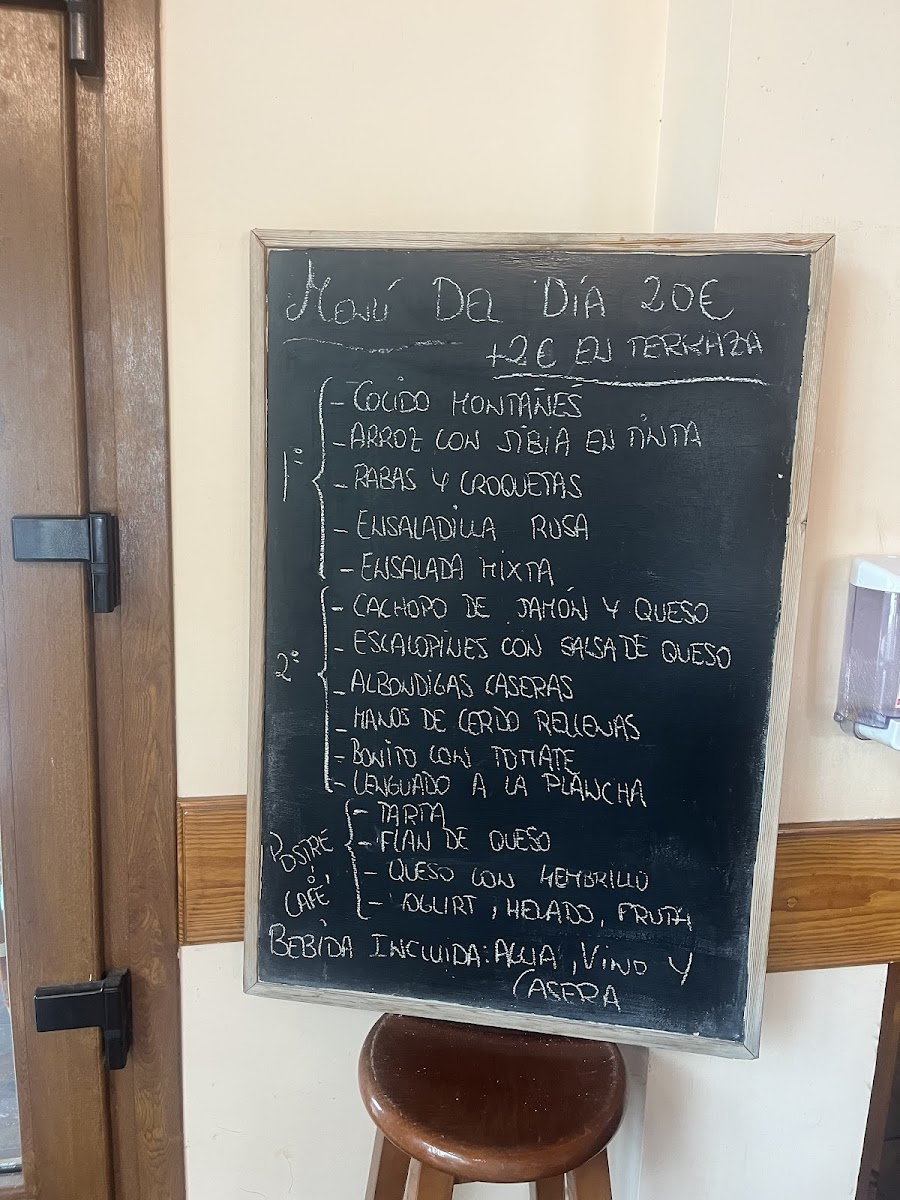 Menú Del Día 20€
+2€ EN TERRAZA
1º
- COCIDO MONTAÑES
- ARROZ CON JIBIA EN TINTA
- RABAS Y CROQUETAS
- ENSALADILLA RUSA
- ENSALADA MIXTA
2º
- CACHOPO DE JAMÓN Y QUESO
- ESCALOPINES CON SALSA DE QUESO
- ALBONDIGAS CASERAS
- MANOS DE CERDO RELLENAS
- BONITO CON TOMATE
- LENGUADO A LA PLANCHA
POSTRE
ó
CAFÉ
- TARTA
- FLAN DE QUESO
- QUESO CON MEMBRILLO
- YOGURT, HELADO, FRUTA
BEBIDA INCLUIDA: AGUA, VINO Y
CASERA